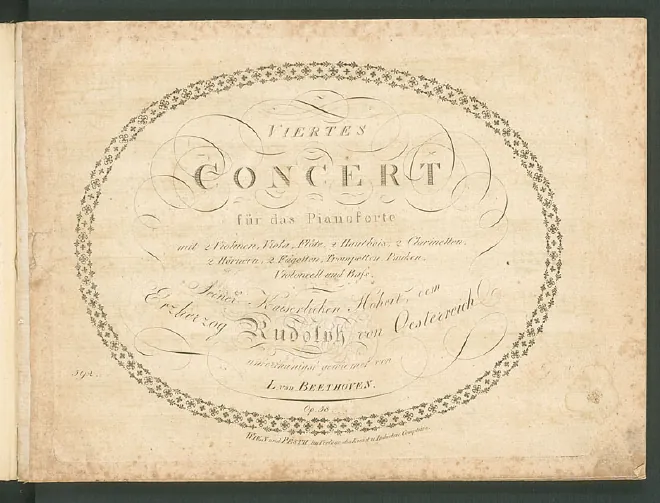 VIERTES
CONCERT
für das Pianoforte
mit 2 Violinen, Viola, Flöte, 2 Hautbois, 2 Clarinetten,
2 Hörnern, 2 Fagotten, Trompetten Pauken,
Violoncell und Bass,
Seiner Kaiserlichen Hoheit, dem
Erzherzog Rudolph von Oesterreich
gewidmet von
L. van BEETHOVEN.
Op. 58
WIEN und PESTH, im Verlage des Kunst u Industrie Comptoirs.